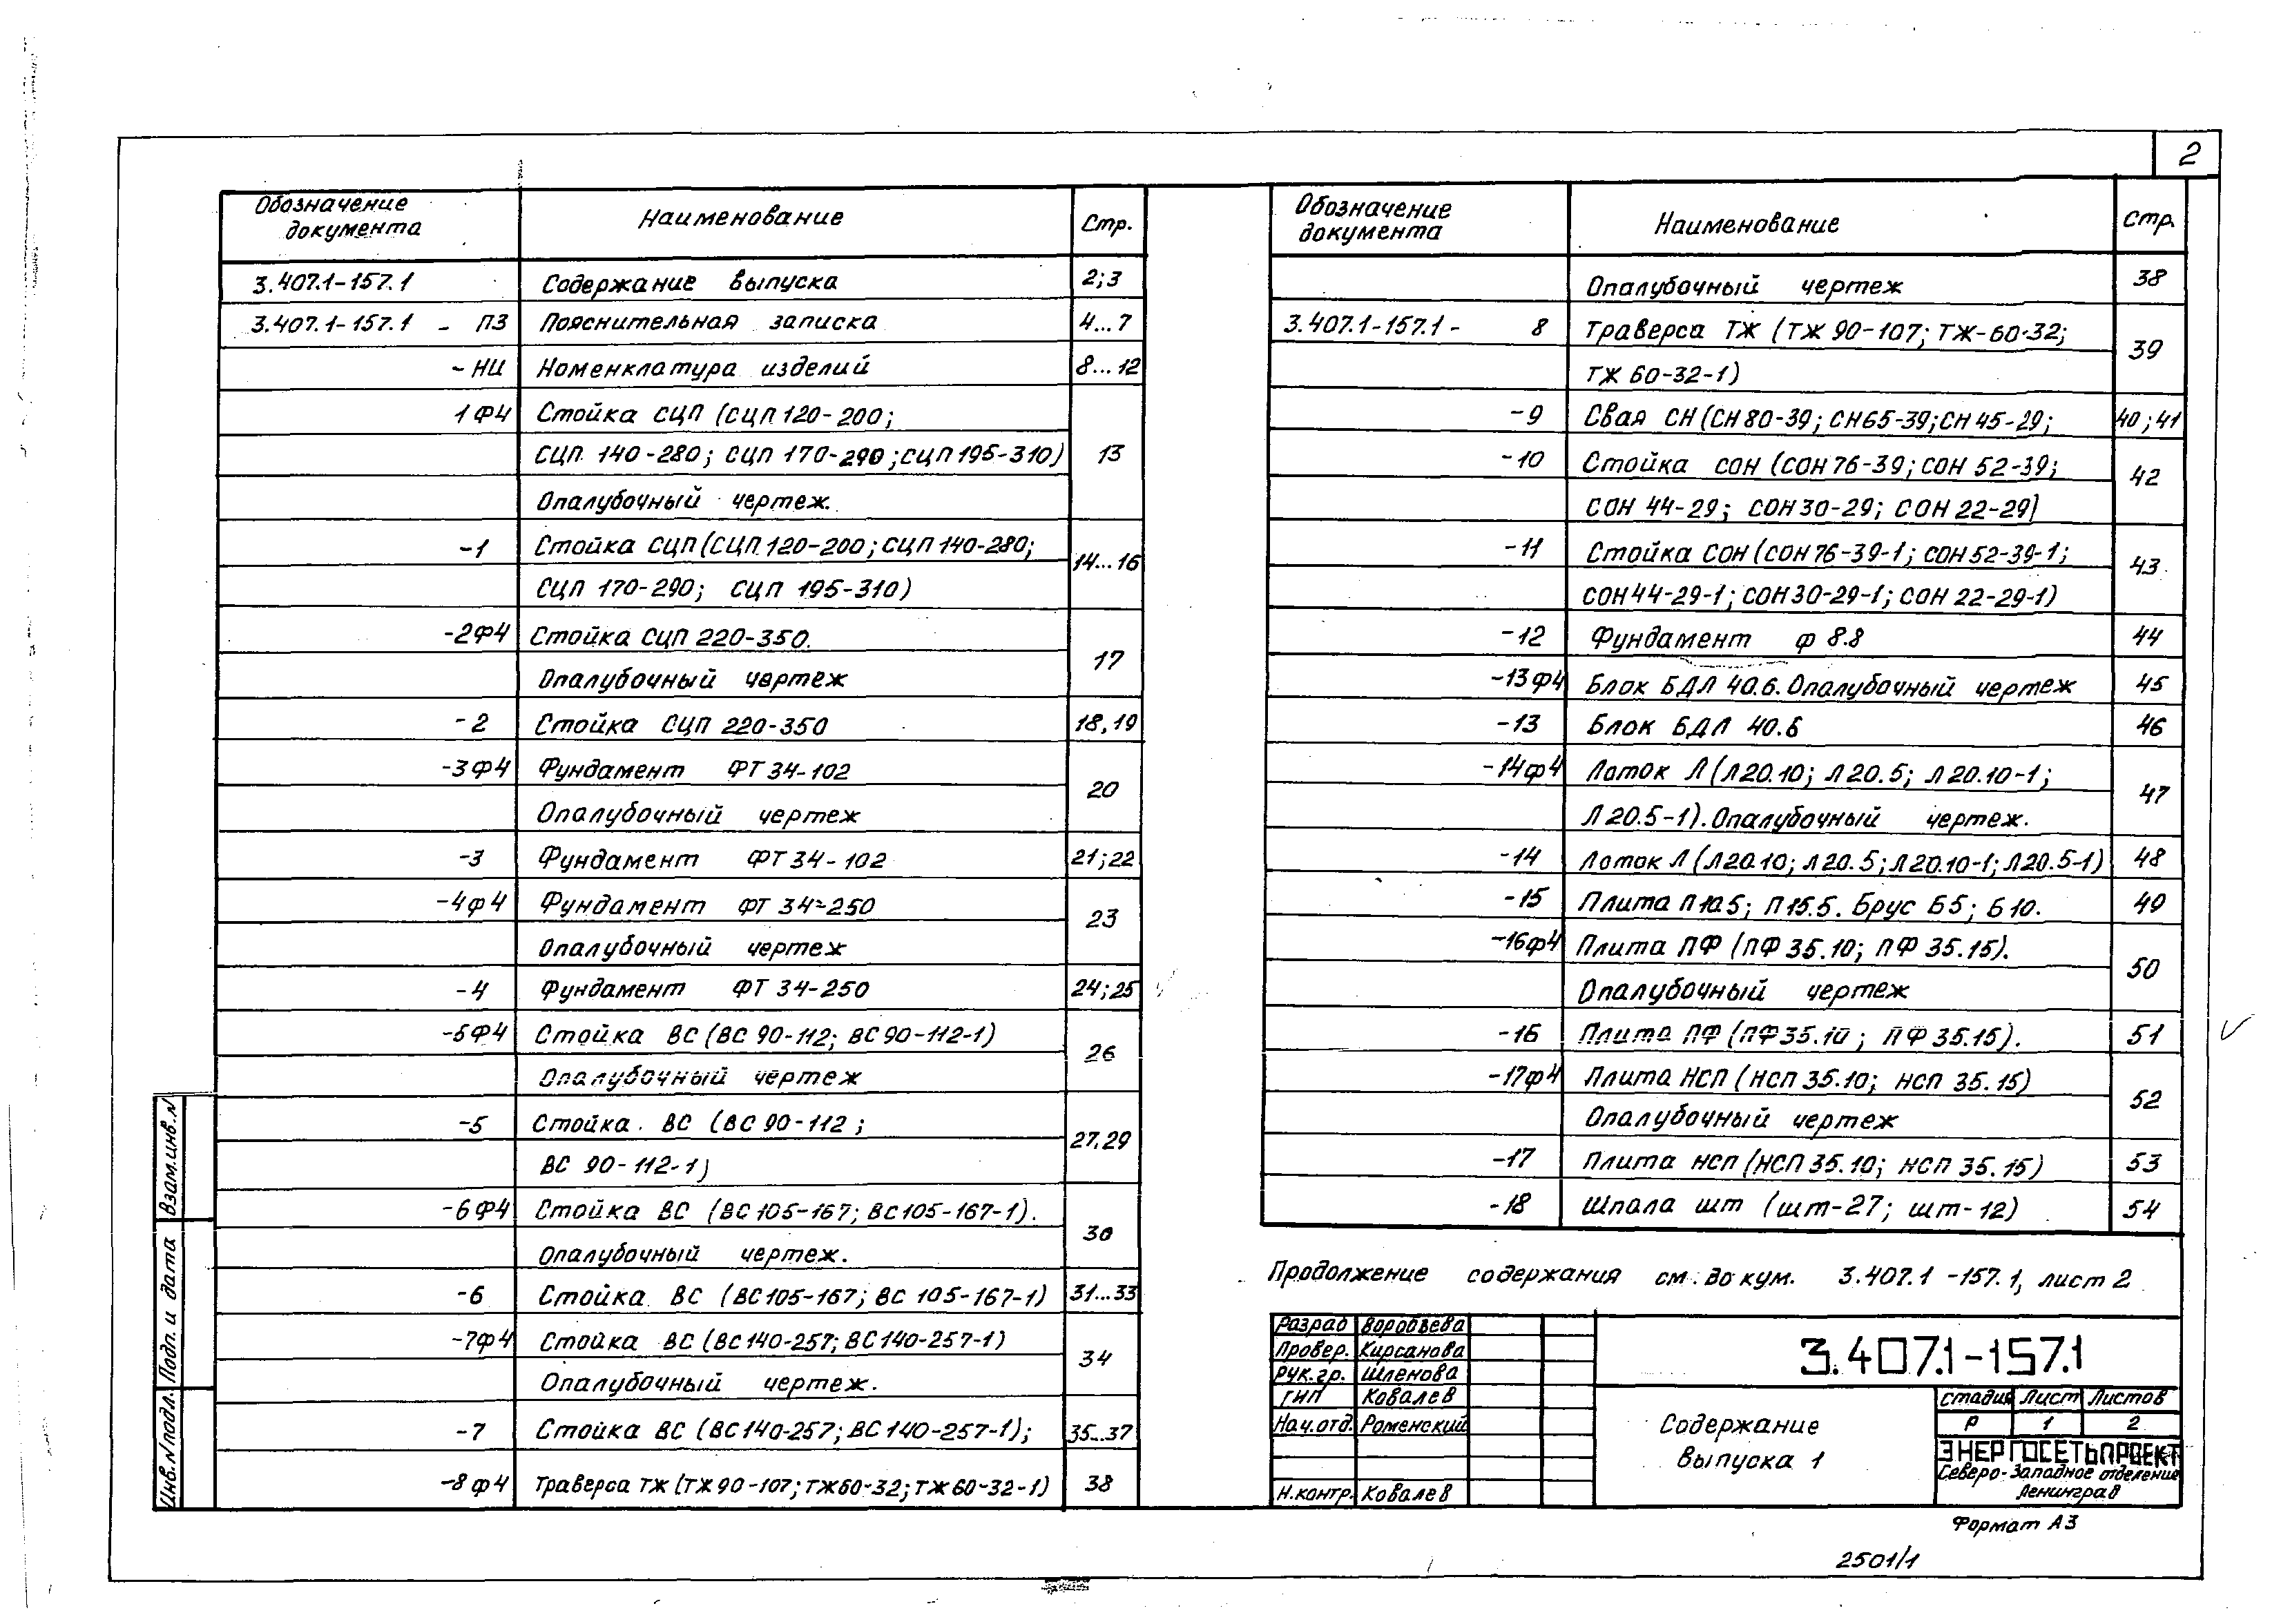 2
Обозначение документа Наименование Стр.
3.407.1-157.1 Содержание выпуска 2;3
3.407.1-157.1 - ПЗ Пояснительная записка 4...7
- НИ Номенклатура изделий 8...12
1Ф4 Стойка СЦП (СЦП 120-200;
СЦП 140-280; СЦП 170-290; СЦП 195-310) 13
Опалубочный чертеж.
-1 Стойка СЦП (СЦП 120-200; СЦП 140-280; 14...16
СЦП 170-290; СЦП 195-310)
-2Ф4 Стойка СЦП 220-350. 17
Опалубочный чертеж
-2 Стойка СЦП 220-350 18,19
-3Ф4 Фундамент ФТ 34-102 20
Опалубочный чертеж
-3 Фундамент ФТ 34-102 21;22
-4Ф4 Фундамент ФТ 34-250 23
Опалубочный чертеж
-4 Фундамент ФТ 34-250 24;25
-5Ф4 Стойка ВС (ВС 90-112; ВС 90-112-1) 26
Опалубочный чертеж
-5 Стойка ВС (ВС 90-112; 27,29
ВС 90-112-1)
-6Ф4 Стойка ВС (ВС 105-167; ВС 105-167-1). 30
Опалубочный чертеж.
-6 Стойка ВС (ВС 105-167; ВС 105-167-1) 31...33
-7Ф4 Стойка ВС (ВС 140-257; ВС 140-257-1) 34
Опалубочный чертеж.
-7 Стойка ВС (ВС 140-257; ВС 140-257-1); 35...37
-8Ф4 Траверса ТЖ (ТЖ 90-107; ТЖ 60-32; ТЖ 60-32-1) 38
Обозначение документа Наименование Стр.
Опалубочный чертеж 38
3.407.1-157.1- 8 Траверса ТЖ (ТЖ 90-107; ТЖ-60-32; 39
ТЖ 60-32-1)
-9 Свая СН (СН 80-39; СН 65-39; СН 45-29; 40;41
-10 Стойка СОН (СОН 76-39; СОН 52-39; 42
СОН 44-29; СОН 30-29; СОН 22-29)
-11 Стойка СОН (СОН 76-39-1; СОН 52-39-1; 43
СОН 44-29-1; СОН 30-29-1; СОН 22-29-1)
-12 Фундамент Ф 8.8 44
-13Ф4 Блок БДЛ 40.6. Опалубочный чертеж 45
-13 Блок БДЛ 40.6 46
-14Ф4 Лоток Л (Л 20.10; Л 20.5; Л 20.10-1; 47
Л 20.5-1). Опалубочный чертеж.
-14 Лоток Л (Л 20.10; Л 20.5; Л 20.10-1; Л 20.5-1) 48
-15 Плита П 10.5; П 15.5. Брус Б5; Б 10. 49
-16Ф4 Плита ПФ (ПФ 35.10; ПФ 35.15). 50
Опалубочный чертеж
-16 Плита ПФ (ПФ 35.10; ПФ 35.15). 51
-17Ф4 Плита НСП (НСП 35.10; НСП 35.15) 52
Опалубочный чертеж
-17 Плита НСП (НСП 35.10; НСП 35.15) 53
-18 Шпала ШТ (ШТ-27; ШТ-12) 54
Продолжение содержания см. докум. 3.407.1-157.1, лист 2
Разраб Воробьева
Провер. Кирсанова
Рук. гр. Шленова
ГИП Ковалев
Нач. отд. Роменский
Н. контр. Ковалев
3.407.1-157.1
Содержание
выпуска 1
Стадия Лист Листов
Р 1 2
ЭНЕРГОСЕТЬПРОЕКТ
Северо-Западное отделение
Ленинград
Формат А3
2501/1
Взам. инв. N
Подп. и дата
Инв. N подл.